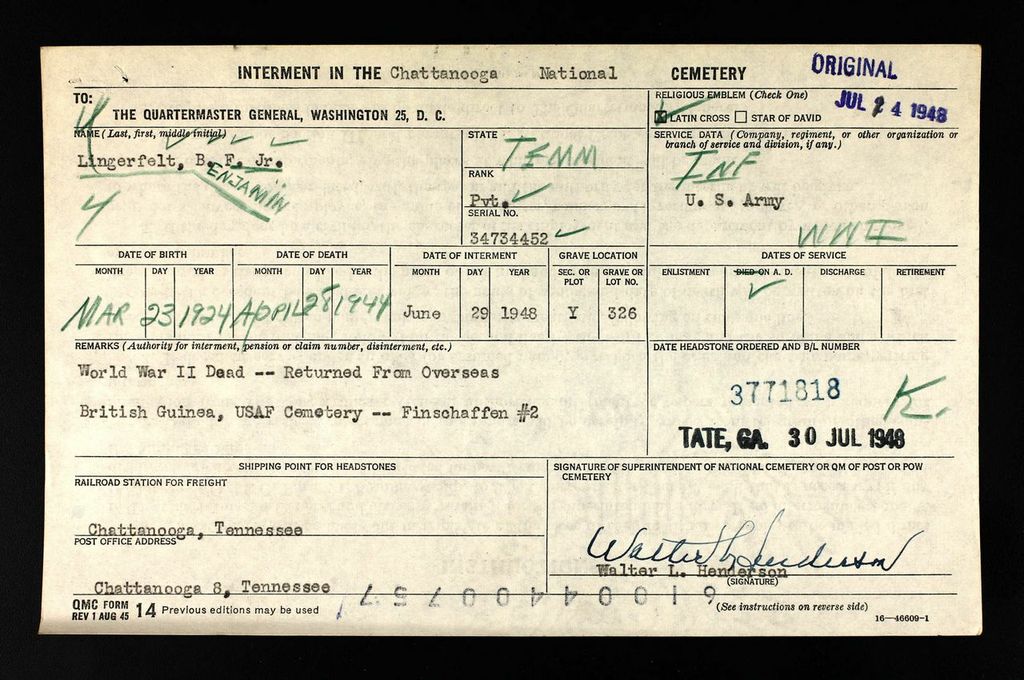 INTERMENT IN THE Chattanooga National CEMETERY
ORIGINAL
JUL 24 1948
TO:
THE QUARTERMASTER GENERAL, WASHINGTON 25, D. C.
RELIGIOUS EMBLEM (Check One)
LATIN CROSS STAR OF DAVID
NAME (Last, first, middle initial)
Lingerfelt, B. F. Jr.
ENJAMIN
4
STATE
TENN
RANK
Pvt.
SERIAL NO.
34734452
SERVICE DATA (Company, regiment, or other organization or
branch of service and division, if any.)
INF
U. S. Army
WWII
DATE OF BIRTH DATE OF DEATH DATE OF INTERMENT GRAVE LOCATION DATES OF SERVICE
MONTH DAY YEAR MONTH DAY YEAR MONTH DAY YEAR SEC. OR PLOT GRAVE OR LOT NO. ENLISTMENT DIED ON A. D. DISCHARGE RETIREMENT
MAR 23 1924 APRIL 28 1944 June 29 1948 Y 326
REMARKS (Authority for interment, pension or claim number, disinterment, etc.)
World War II Dead -- Returned From Overseas
British Guinea, USAF Cemetery -- Finschaffen #2
DATE HEADSTONE ORDERED AND B/L NUMBER
3771818
K.
TATE, GA. 30 JUL 1948
SHIPPING POINT FOR HEADSTONES
RAILROAD STATION FOR FREIGHT
Chattanooga, Tennessee
POST OFFICE ADDRESS
Chattanooga 8, Tennessee
SIGNATURE OF SUPERINTENDENT OF NATIONAL CEMETERY OR QM OF POST OR POW
CEMETERY
Walter L. Henderson
Walter L. Henderson
(SIGNATURE)
61004400757
QMC FORM
REV 1 AUG 45 14 Previous editions may be used
(See instructions on reverse side)
16—46609-1